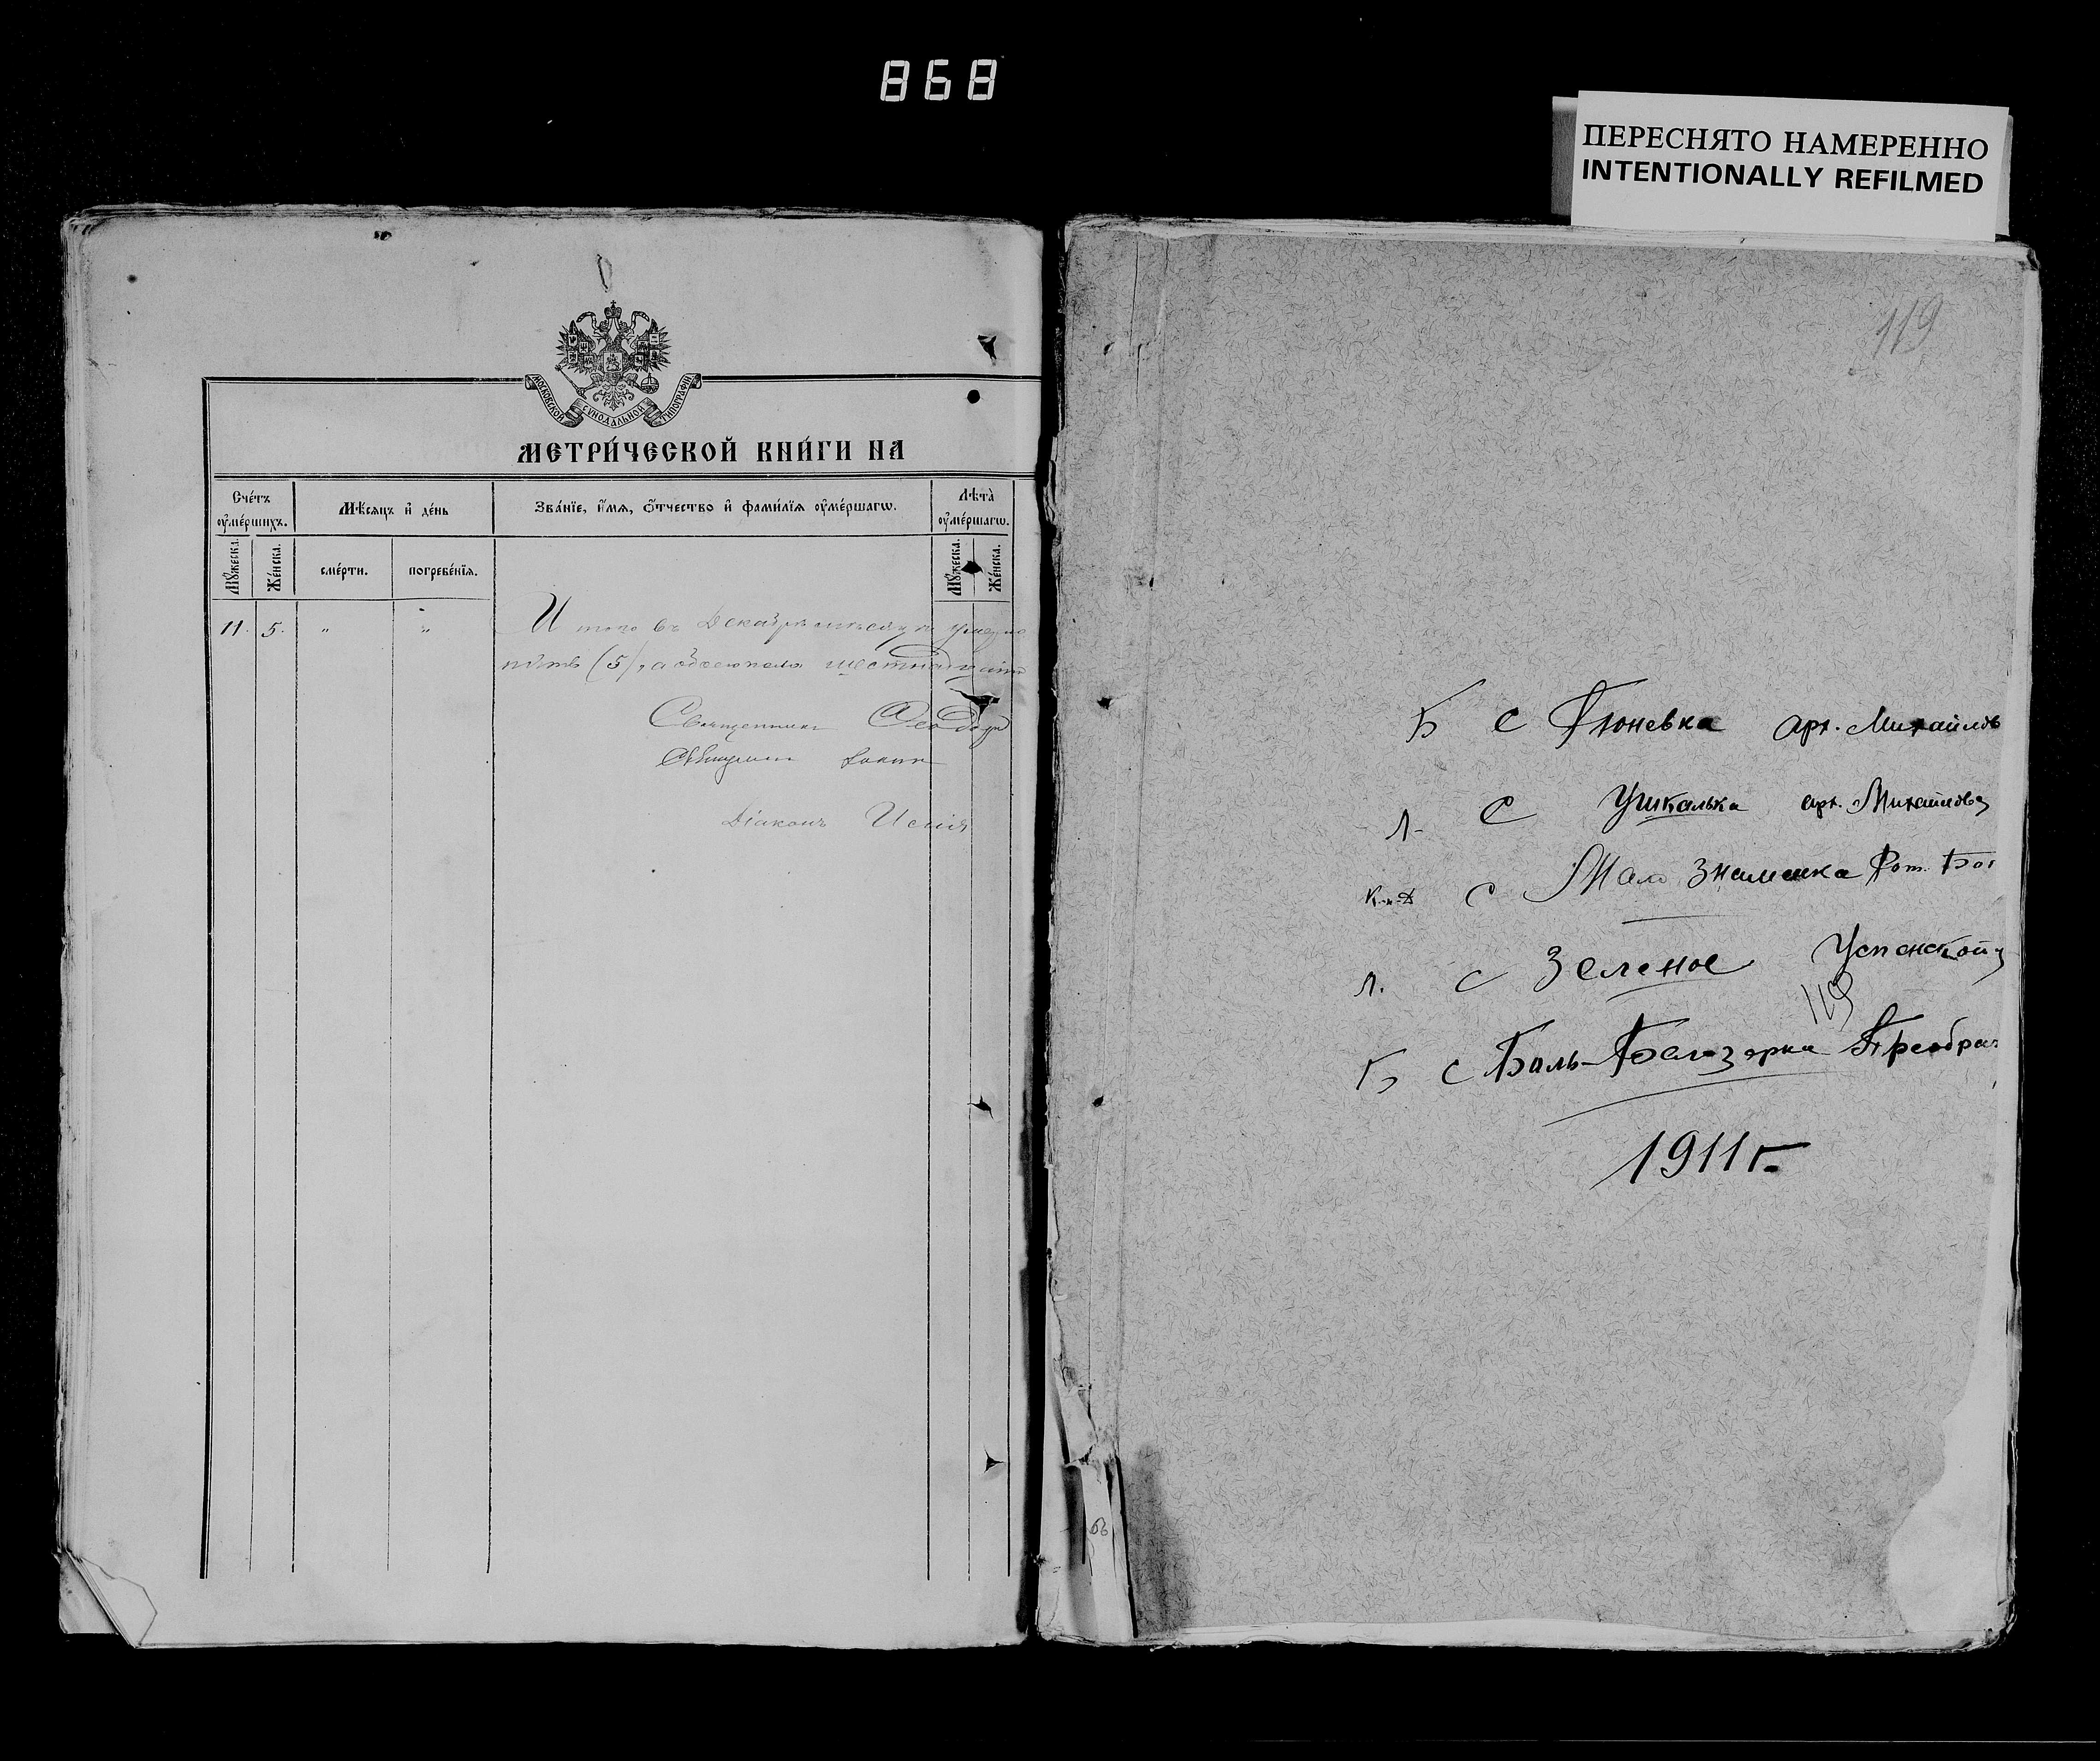 868
ПЕРЕСНЯТО НАМЕРЕННО
INTENTIONALLY REFILMED
МОСКОВСКОЙ СѴНОДАЛЬНОЙ ТИПОГРАФІИ
МЕТРИ́ЧЕСКОЙ КНИ́ГИ НА
Сче́тъ ᲂу҆ме́ршихъ.
Мѣ́сяцъ и҆ де́нь
Зва́нїе, и҆́мѧ, ѻ҆́тчество и҆ фами́лїѧ ᲂу҆ме́ршагѡ.
Лѣ́та ᲂу҆ме́ршагѡ.
Мꙋ́жеска.
Же́нска.
сме́рти.
погребе́нїѧ.
Мꙋ́жеска.
Же́нска.
11. 5. " " Итого въ Декабрѣ мѣсяцѣ
пять (5), а обоего пола шестнадцать
Священникъ Ѳеодоръ
Діаконъ
119
Б С Тюневка арх. Михайлов
Л- С Ушкалка арх. Михайлов
К-Д С Мало Знаменка Рож. Бог
Л. С Зеленое Успенской
119
Б С Боль-Белозерка Преображ
1911 г.